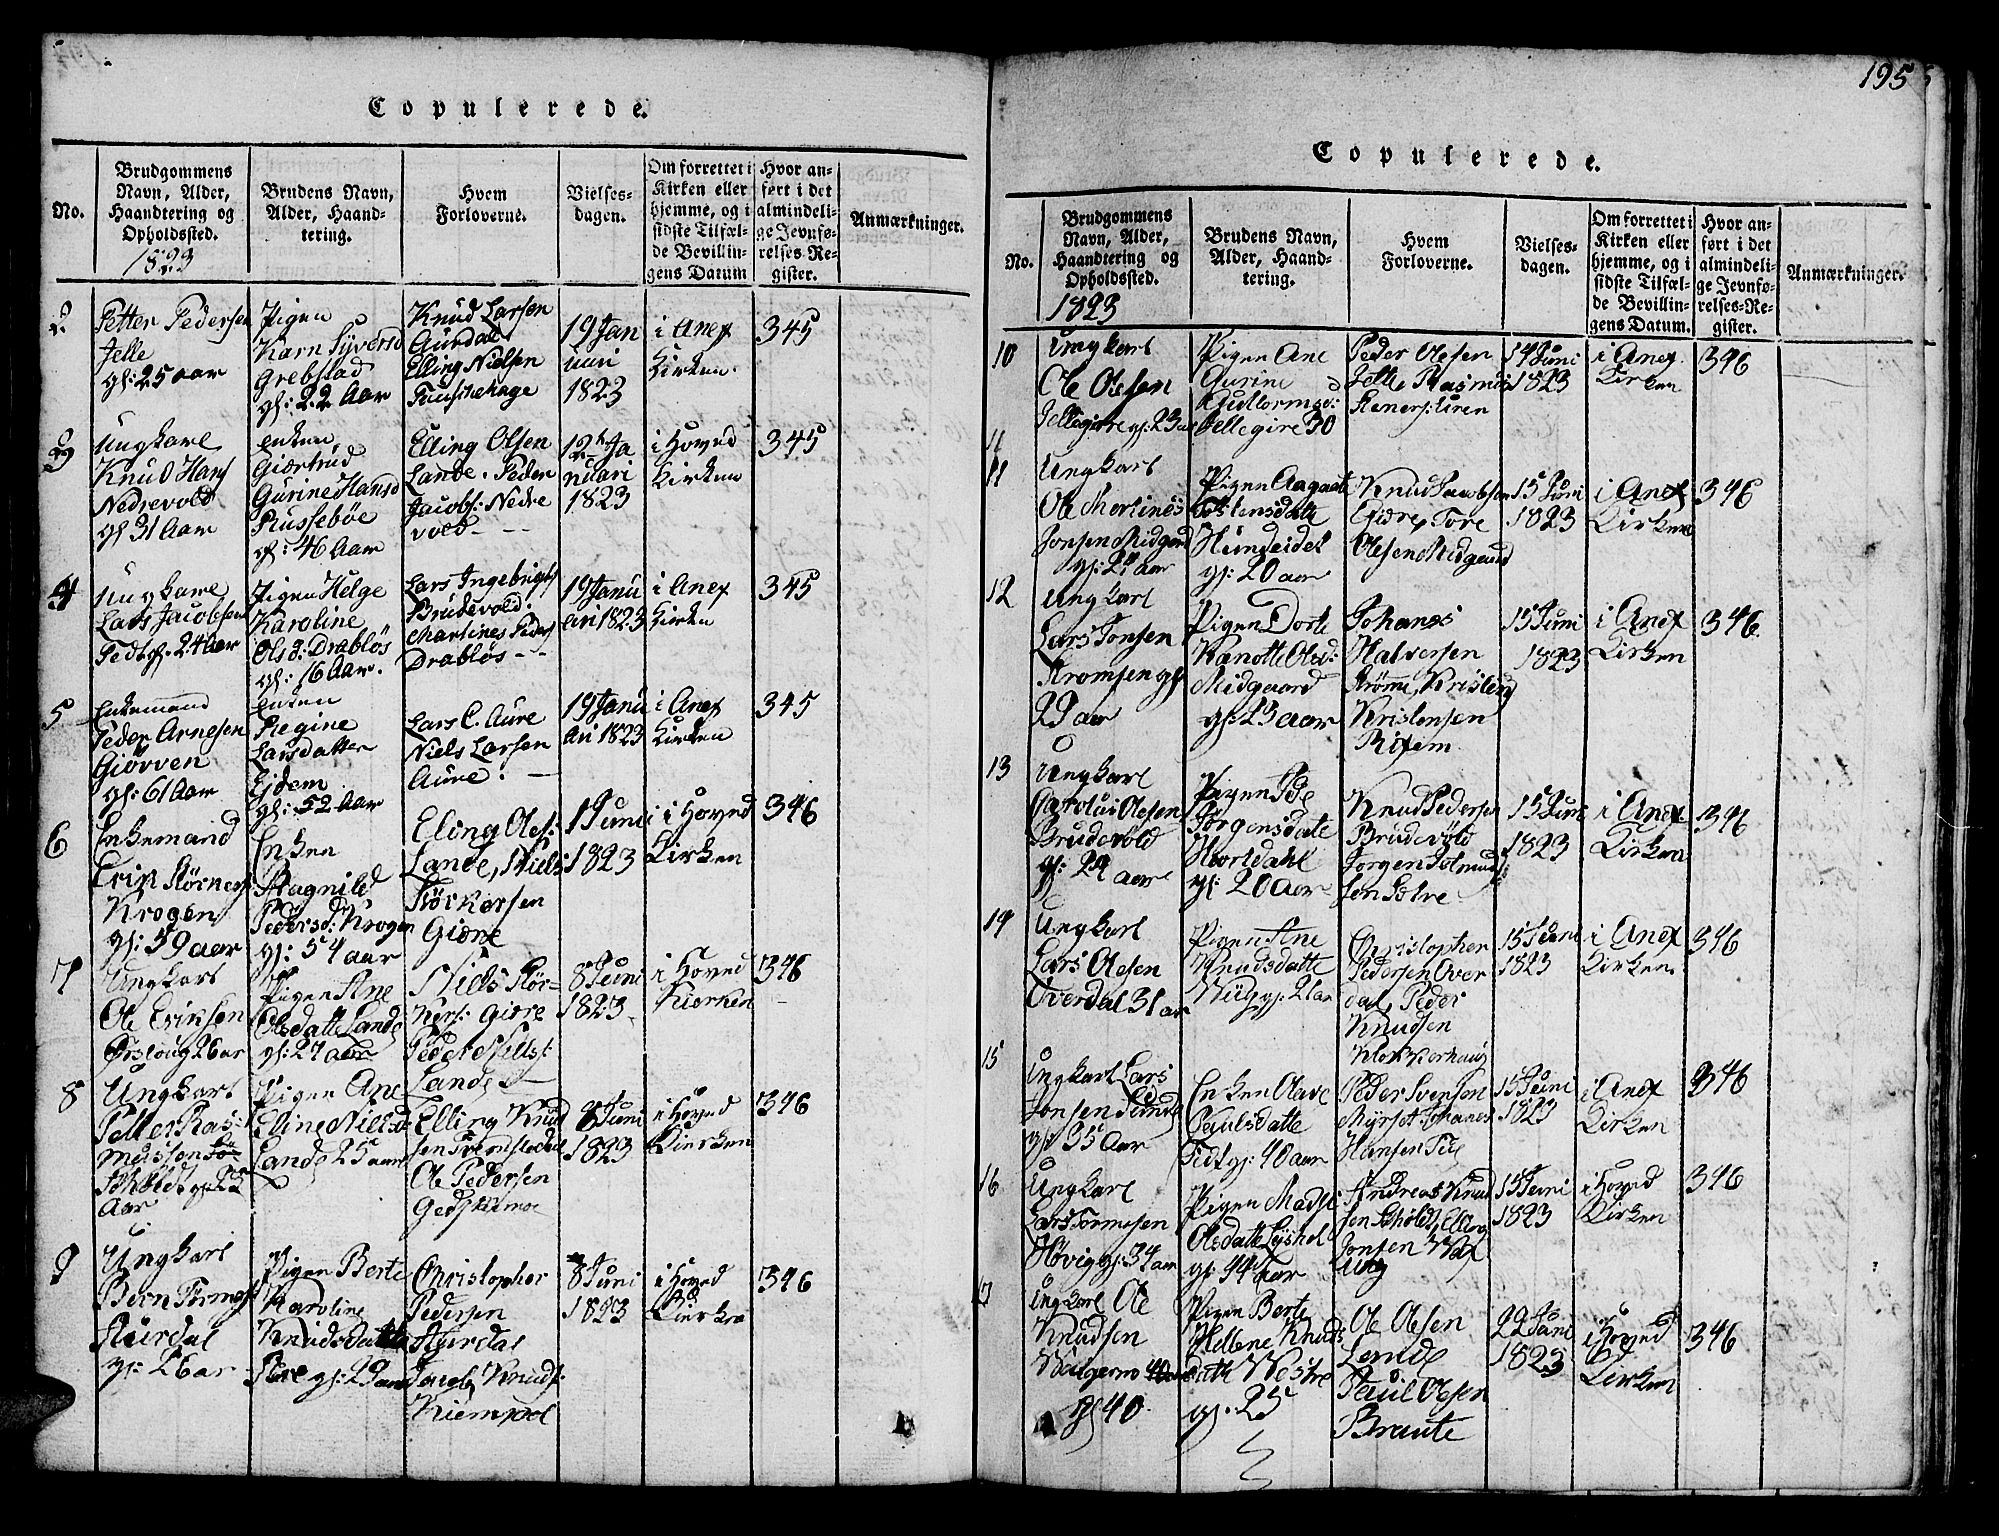 Copulerede.
No.
Brudgommens Navn, Alder, Haandtering og Opholdssted.
1823
Brudens Navn, Alder, Haandtering.
Hvem Forloverne.
Vielsesdagen.
Om forrettet i Kirken eller hjemme, og i sidste Tilfælde Bevillingens Datum
Hvor anført i det almindelige Jevnførelses-Register.
Anmærkninger.
2
Petter Pedersen
Jelle
gl: 25 aar
Pigen
Karn Syversd
Grebstad
gl: 22 Aar
Knud Larsen
Aurdal
Elling Nielsen
19 Jan
uari
1823
i Anex
Kirken
345
3
Ungkarl
Knud Hans
Nedrevold
gl 31 Aar
Enken
Giertrud
Gurine Hansd
Russebøe
gl: 46 Aar
Elling Olsen
Lande. Peder
Jacobs: Nedre
vold
12te Ja
nuari
1823
i Hoved
Kirken
345
4
Ungkarl
Lars Jacobsen
Tedt gl. 24 Aar
Pigen Helge
Karoline
Olsd: Drabløs
gl: 16 Aar.
Lars Ingebrigts
Brudevold.
Martines Peders
Drabløs
19 Janu
ari 1823
i Anex
Kirken
345
5
Enkemand
Peder Arnesen
Giørven
gl: 61 Aar
Enken
Regine
Larsdatter
Ejdem
gl: 52 Aar
Lars C. Aure
Niels Larsen
Aure
19 Janu
ari 1823
i Anex
Kirken
345
6
Enkemand
Krogen
gl: 59 aar
Enken
Ragnild
Pedersd: Krogen
gl: 54 aar
Eling Oles:
Lande, Niels
Størkersen
Giære
1 Juni
1823
i Hoved
Kirken
346
7
Ungkarl
Ole Eriksen
Ørsloug 26 ar
Pigen Ane
Olsdatte Lande
gl: 27 aar
Niels Stør=
Kers: Giære
Peder Niels:
Lande
8 Juni
1823
i Hoved
Kierken
346
8
Ungkarl
Petter Ras
mussen
gl 23
Aar
Pigen Ane
Elline Nielsd
Lande 25 aar
Elling Knud
sen
Ole Pedersen
8 Juni
1823
i Hoved
Kierken
346
9
Ungkarl
Aurdal
gl: 26 ar
Pigen Berte
Karoline
Knudsdatte
gl: 29 aar
Christopher
Pedersen
Aurdal
Jacob Knuds:
8 Juni
1823
i Hoved
Kierke
346
195
Copulerede.
No.
Brudgommens Navn, Alder, Haandtering og Opholdssted.
1823
Brudens Navn, Alder, Haandtering.
Hvem Forloverne.
Vielsesdagen.
Om forrettet i Kirken eller hjemme, og i sidste Tilfælde Bevillingens Datum.
Hvor anført i det almindelige Jevnførelses-Register.
Anmærkninger.
10
Ungkarl
Ole Olesen
Jellegjere gl: 23 aar
Pigen Ane
Gurine
Gutlormsd:
Jellegire 30
Peder Olesen
Jelle, Rasmus
14 Juni
1823
i Anex
Kirken
346
11
11
Ungkarl
Ole Mortines
Jonsen Midgard
gl: 24 aar
Pigen Aagaat
Hundeidet
gl: 20 aar
Knud Jacobsen
Gjære, Tore
Olesen Midgaard
15 Juni
1823
i Anex
Kirken
346
12
Ungkarl
Lars Jonsen
Strømsen gl
29 aar
Pigen Dorte
Kanotte Olsd:
Midgaard
gl: 23 aar
Johanes
Halversen
Strømi, Kristen
Kristensen
Rixem
15 Juni
1823
i Anex
Kirken
346.
13
Ungkarl
Carolus Olesen
Brudevold
gl: 24 aar
Pigen
Jørgensdatte
Hiortdahl
gl: 20 aar
Knud Pedersen
Brudevold
Jørgen Solmund
sen
15 Juni
1823
i Anex
Kirken
346
14
Ungkarl
Lars Olesen
Overdal 31 ar
Pigen Ane
Knudsdatte
Christopher
Pedersen Over
dal, Peder
Knudsen
Klokkerhaug
15 Juni
1823
i Anex
Kirken
346
15
Ungkarl Lars
Jonsen
gl 35 Aar
Enken Olave
Paulsdatte
Tedt gl: 40 aar
Peder Svensen
Myrset Johanes
Hansen
15 Juni
1823
i Anex
Kirken
346
16
Ungkarl
Lars Tormosen
Høvig gl: 34 aar
Pigen Madsi
Olsdatte
gl: 44 aar
Andreas Knud
sen Skholdt, Elling
Jonsen
15 Juni
1823
i Hoved
Kirken
346
17
Ungkarl Ole
Knudsen
gl 40
Pigen Berte
Hellene Knuds
datte Westre
gl: 25
Ole Olesen
Lande
Paul Olesen
Braute
22 Juni
1823
i Hoved
Kirken
346